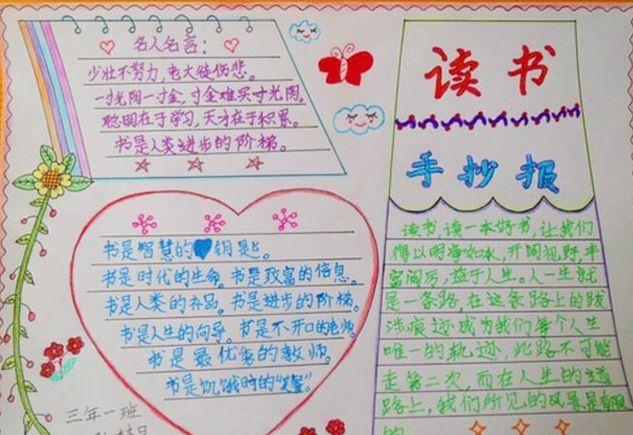 名人名言：
少壮不努力，老大徒伤悲。
一寸光阴一寸金，寸金难买寸光阴。
聪明在于学习，天才在于积累。
书是人类进步的阶梯。
读书
手抄报
书是智慧的钥匙。
书是时代的生命。书是致富的信息。
书是人类的补品。书是进步的阶梯。
书是人生的向导。书是不开口的老师。
书是最优秀的教师。
书是饥饿时的“餐”。
三年一班
读书，读一本好书，让我们
得以明净如水，开阔视野，丰
富阅历，益于人生。人一生就
是一条路，在这条路上的跋
涉痕迹成为我们每个人生
唯一的轨迹，此路不可能
走第二次，而在人生的道
路上，我们所见的风景是有限
的